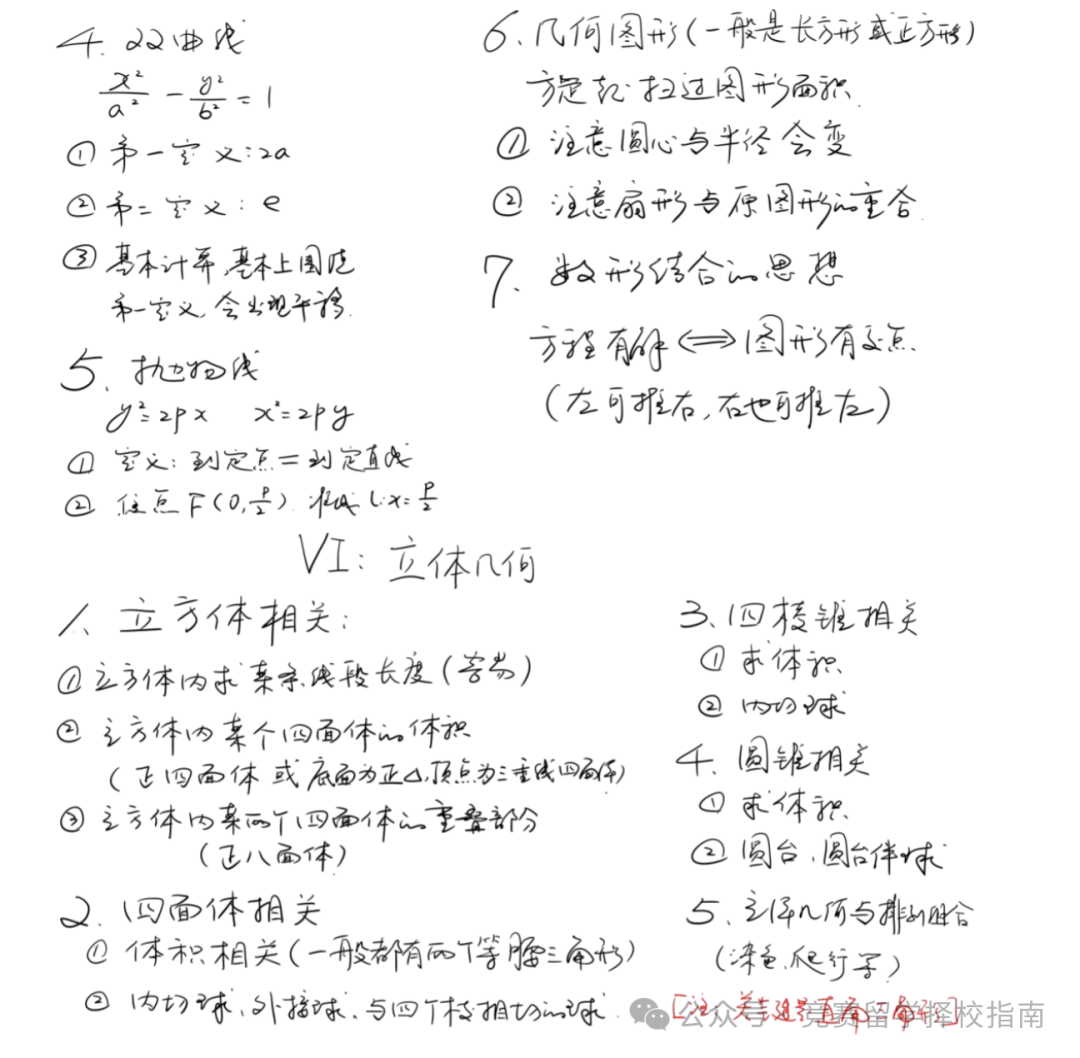 4. 双曲线
x²/a² - y²/b² = 1
① 第一定义:2a
② 第二定义: e
③ 基本计算,基本上围绕
第一定义,会出现平移.
5. 抛物线
y²=2px x²=2py
① 定义:到定点=到定直线
② 焦点F(0,p/2) 准线l:x=p/2
6、几何图形(一般是长方形或正方形)
旋转扫过图形面积.
① 注意圆心与半径会变
② 注意扇形与原图形的重合
7. 数形结合的思想
方程有解⟺图形有交点.
(左可推右,右也可推左)
VI: 立体几何
1、立方体相关:
① 立方体内求某条线段长度()
② 立方体内某个四面体的体积
(正四面体或底面为正△,顶点为三垂线四面体)
③ 立方体内某两个四面体的重叠部分
(正八面体)
2. 四面体相关
① 体积相关(一般都有两个等腰三角形)
② 内切球、外接球、与四个棱相切的球
3、四棱锥相关
① 求体积
② 内切球
4. 圆锥相关
① 求体积
② 圆台、圆台伴球
5、立体几何与排列组合
(染色、爬行等)
[注: 直角三角形]
公众号·竞赛留学择校指南